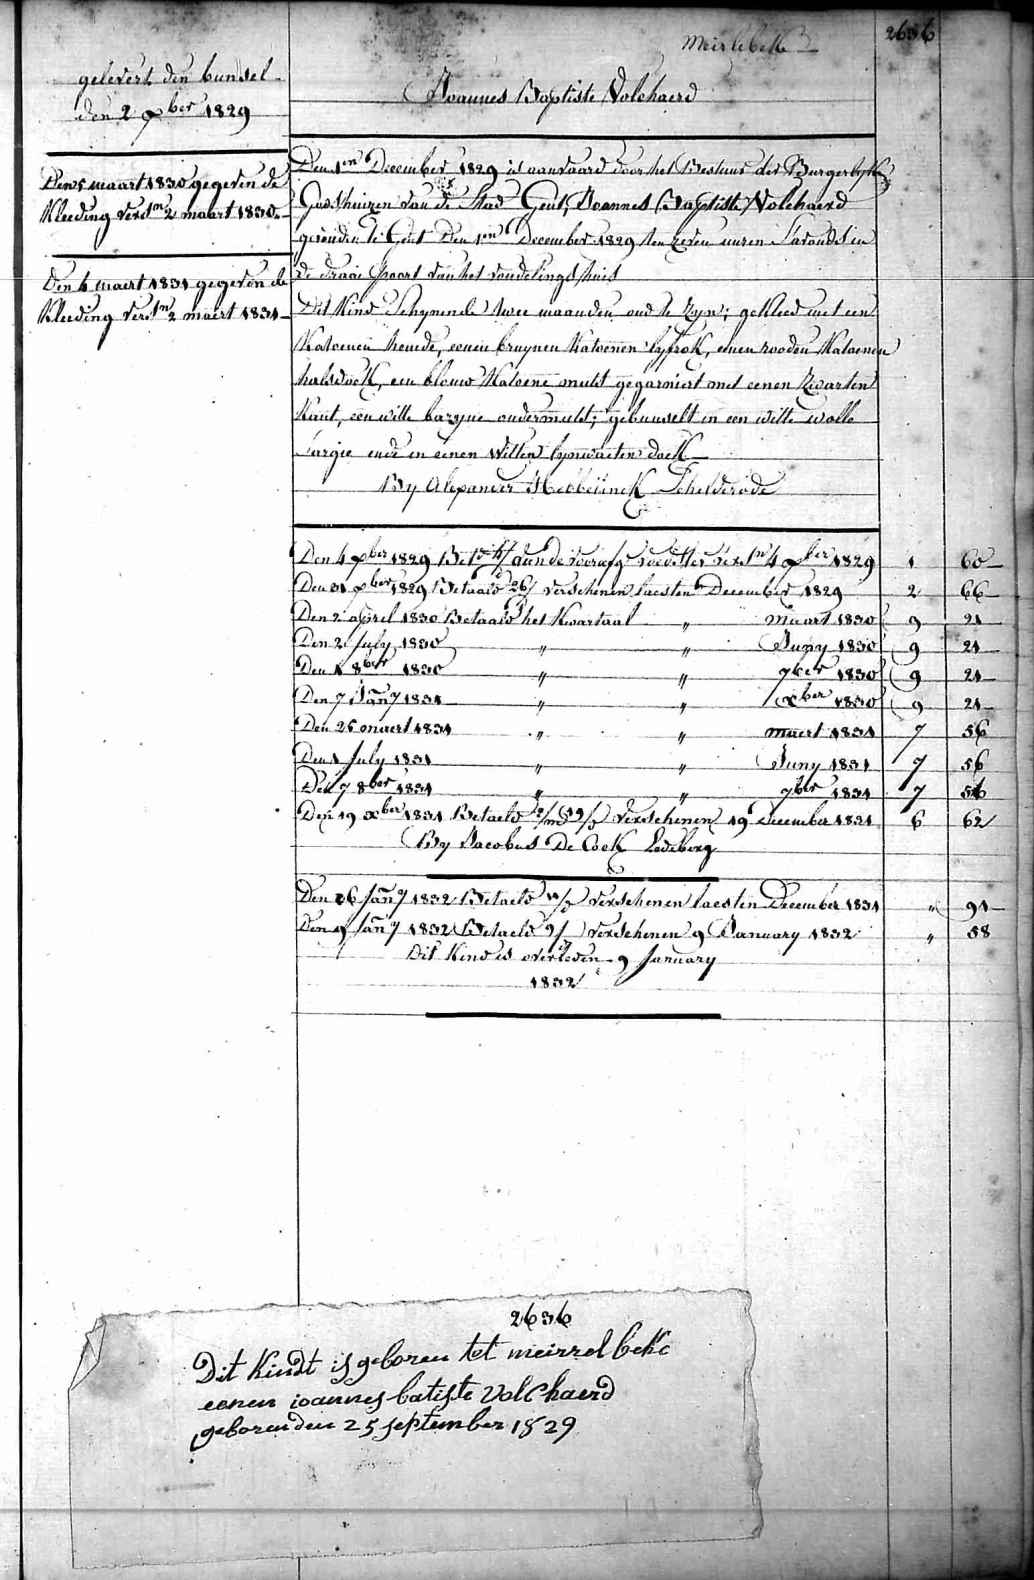 Meirlebeke
2636
gelevert den bunsel
den 2 xber 1829
Joannes Baptiste Volchaerd
Den 5 maart 1830 gegeven de
Kleeding vers. 1n 2 maart 1830
Den 6 maert 1831 gegeven de
Kleeding vers. 1n 2 maert 1831
Den 1en December 1829 is aanvaard door het Bestuur der Burgerlyke
Godshuizen van de Stad Gent, Joannes Baptiste Volchaerd
gevonden te Gent den 1en December 1829 ten zeven uuren s'avonds in
de draai Poort van het vondelings huis
Dit Kind schynende twee maanden oud te zyn; gekleed met een
Katoenen hemde, eenen bruynen Katoenen lyfrok, eenen rooden Katoenen
halsdoek, een blauw Katoene muts gegarniert met eenen zwarten
Kant, een witte bazyne ondermuts; gebunselt in een witte wolle
Sargie ende in eenen witten lynwaeten doek
By Alexander Hebbelinck Schelderode
Den 4 xber 1829 Bet. aan de voorafg. voedster vers. 1n 4 xber 1829 1 60
Den 31 xber 1829 Betaald 26/ verschenen laesten December 1829 2 66
Den 2 april 1830 Betaald het Kwartaal " maart 1830 9 21
Den 2 July 1830 " " Juny 1830 9 21
Den 1 8ber 1830 " " 7ber 1830 9 21
Den 7 Jany 1831 " " xber 1830 9 21
Den 25 maert 1831 " " maert 1831 7 56
Den 1 July 1831 " " Juny 1831 7 56
Den 7 8ber 1831 " " 7ber 1831 7 56
Den 19 xber 1831 Betaeld 2/m 19/d verschenen 19 December 1831 6 62
By Jacobus De Cock Ledeberg
Den 6 Jany 1832 Betaeld verschenen laesten December 1831 " 91
Den 9 Jany 1832 Betaeld 9/ verschenen 9 January 1832 " 58
Dit Kind is overleden 9 January
1832
2636
Dit Kindt is geboren tet meirrelbeke
eenen ioannes batiste volchaerd
geboren den 25 september 1829